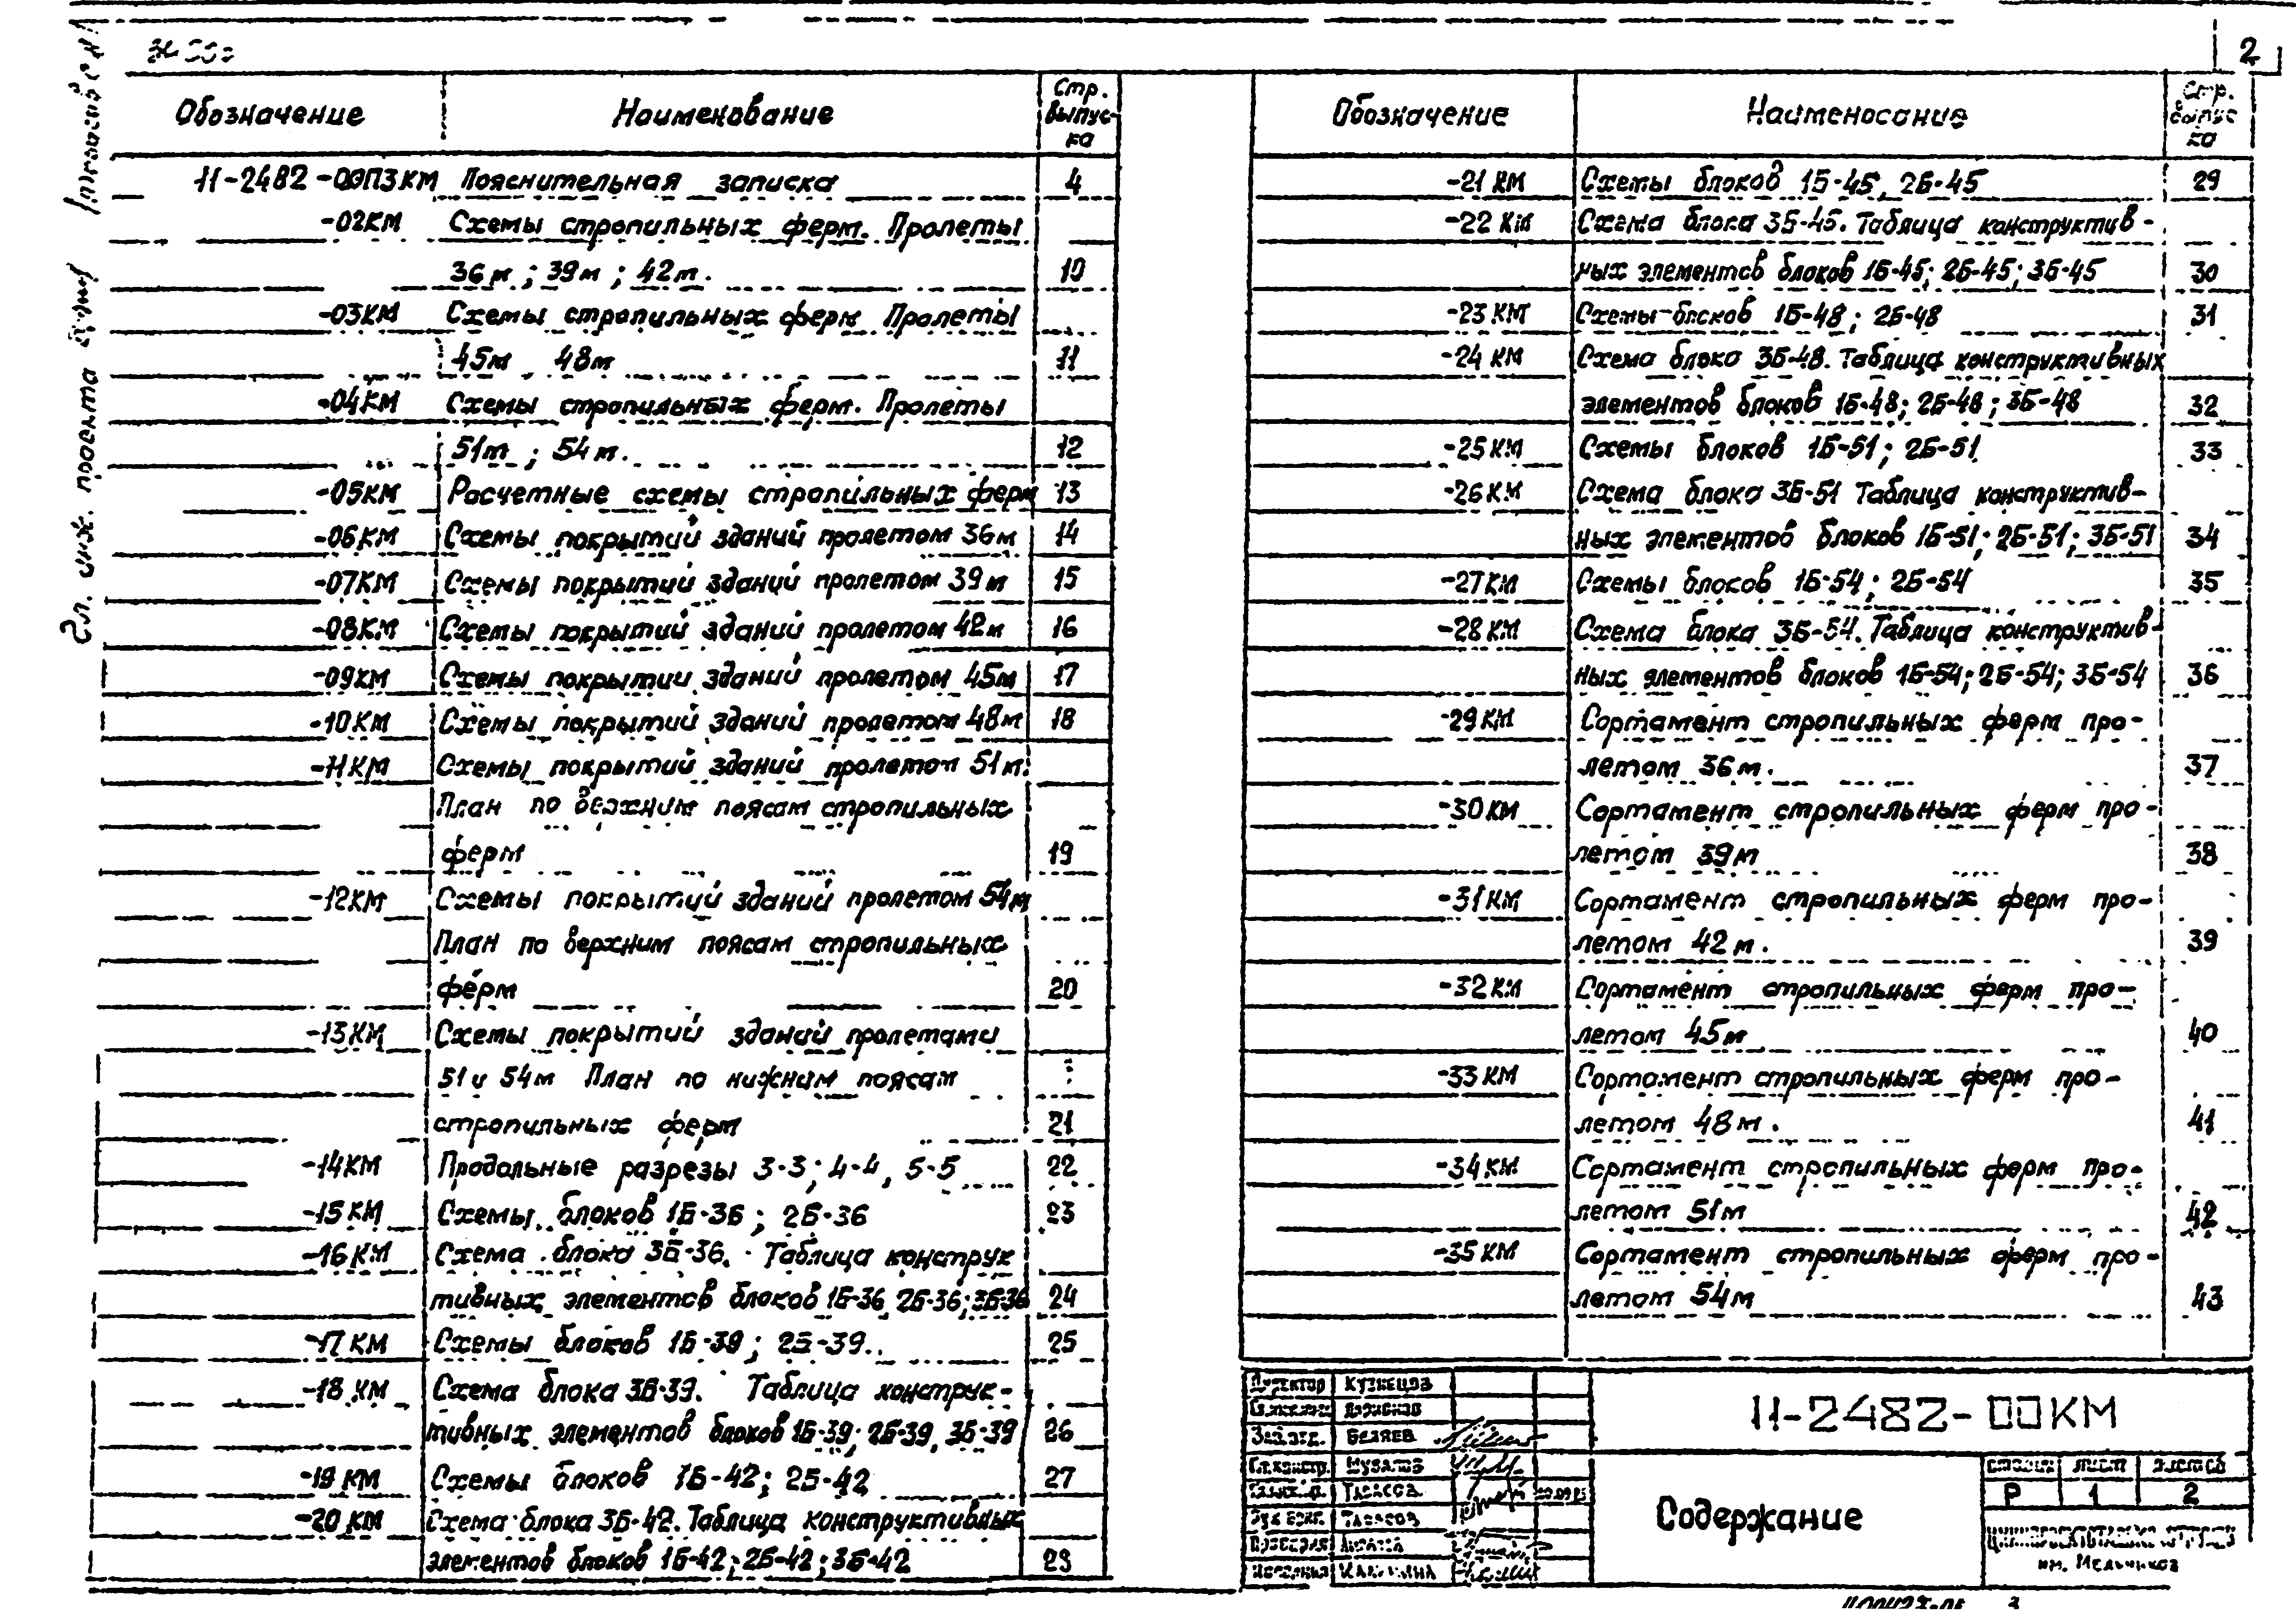 2
Обозначение Наименование Стр. выпус-ка
11-2482-00ПЗКМ Пояснительная записка 4
-02КМ Схемы стропильных ферм. Пролеты
36м; 39м; 42м. 10
-03КМ Схемы стропильных ферм Пролеты
45м 48м 11
-04КМ Схемы стропильных ферм. Пролеты
51м; 54м. 12
-05КМ Расчетные схемы стропильных ферм 13
-06КМ Схемы покрытий зданий пролетом 36м 14
-07КМ Схемы покрытий зданий пролетом 39м 15
-08КМ Схемы покрытий зданий пролетом 42м 16
-09КМ Схемы покрытии зданий пролетом 45м 17
-10КМ Схемы покрытий зданий пролетом 48м 18
-11КМ Схемы покрытий зданий пролетом 51м.
План по верхним поясам стропильных
ферм 19
-12КМ Схемы покрытий зданий пролетом 54м
План по верхним поясам стропильных
ферм 20
-13КМ Схемы покрытий зданий пролетами
51 и 54м План по нижним поясам
стропильных ферм 21
-14КМ Продольные разрезы 3-3; 4-4, 5-5 22
-15КМ Схемы блоков 1Б-36; 2Б-36 23
-16КМ Схема блока 3Б-36. Таблица конструк
тивных элементов блоков 1Б-36 2Б-36; 3Б-36 24
-17КМ Схемы блоков 1Б-39; 2Б-39. 25
-18КМ Схема блока 3Б-39. Таблица конструк-
тивных элементов блоков 1Б-39; 2Б-39, 3Б-39 26
-19КМ Схемы блоков 1Б-42; 2Б-42 27
-20КМ Схема блока 3Б-42. Таблица конструктивных
элементов блоков 1Б-42; 2Б-42; 3Б-42 28
Обозначение Наименование Стр. выпус ка
-21КМ Схемы блоков 1Б-45, 2Б-45 29
-22КМ Схема блока 3Б-45. Таблица конструктив-
ных элементов блоков 1Б-45; 2Б-45; 3Б-45 30
-23КМ Схемы блоков 1Б-48; 2Б-48 31
-24КМ Схема блока 3Б-48. Таблица конструктивных
элементов блоков 1Б-48; 2Б-48; 3Б-48 32
-25КМ Схемы блоков 1Б-51; 2Б-51 33
-26КМ Схема блока 3Б-51 Таблица конструктив-
ных элементов блоков 1Б-51; 2Б-51; 3Б-51 34
-27КМ Схемы блоков 1Б-54; 2Б-54 35
-28КМ Схема блока 3Б-54. Таблица конструктив-
ных элементов блоков 1Б-54; 2Б-54; 3Б-54 36
-29КМ Сортамент стропильных ферм про-
летом 36м. 37
-30КМ Сортамент стропильных ферм про-
летом 39м 38
-31КМ Сортамент стропильных ферм про-
летом 42м. 39
-32КМ Сортамент стропильных ферм про-
летом 45м 40
-33КМ Сортамент стропильных ферм про-
летом 48м. 41
-34КМ Сортамент стропильных ферм про-
летом 51м 42
-35КМ Сортамент стропильных ферм про-
летом 54м 43
Гл. инж. проекта
Директор Кузнецов
Зав.отд. Беляев
Гл.констр. Шувалов
Тарасов
Рук бриг. Тарасов
Проверил
11-2482-00КМ
Содержание
стадия лист листов
Р 1 2
им. Мельникова